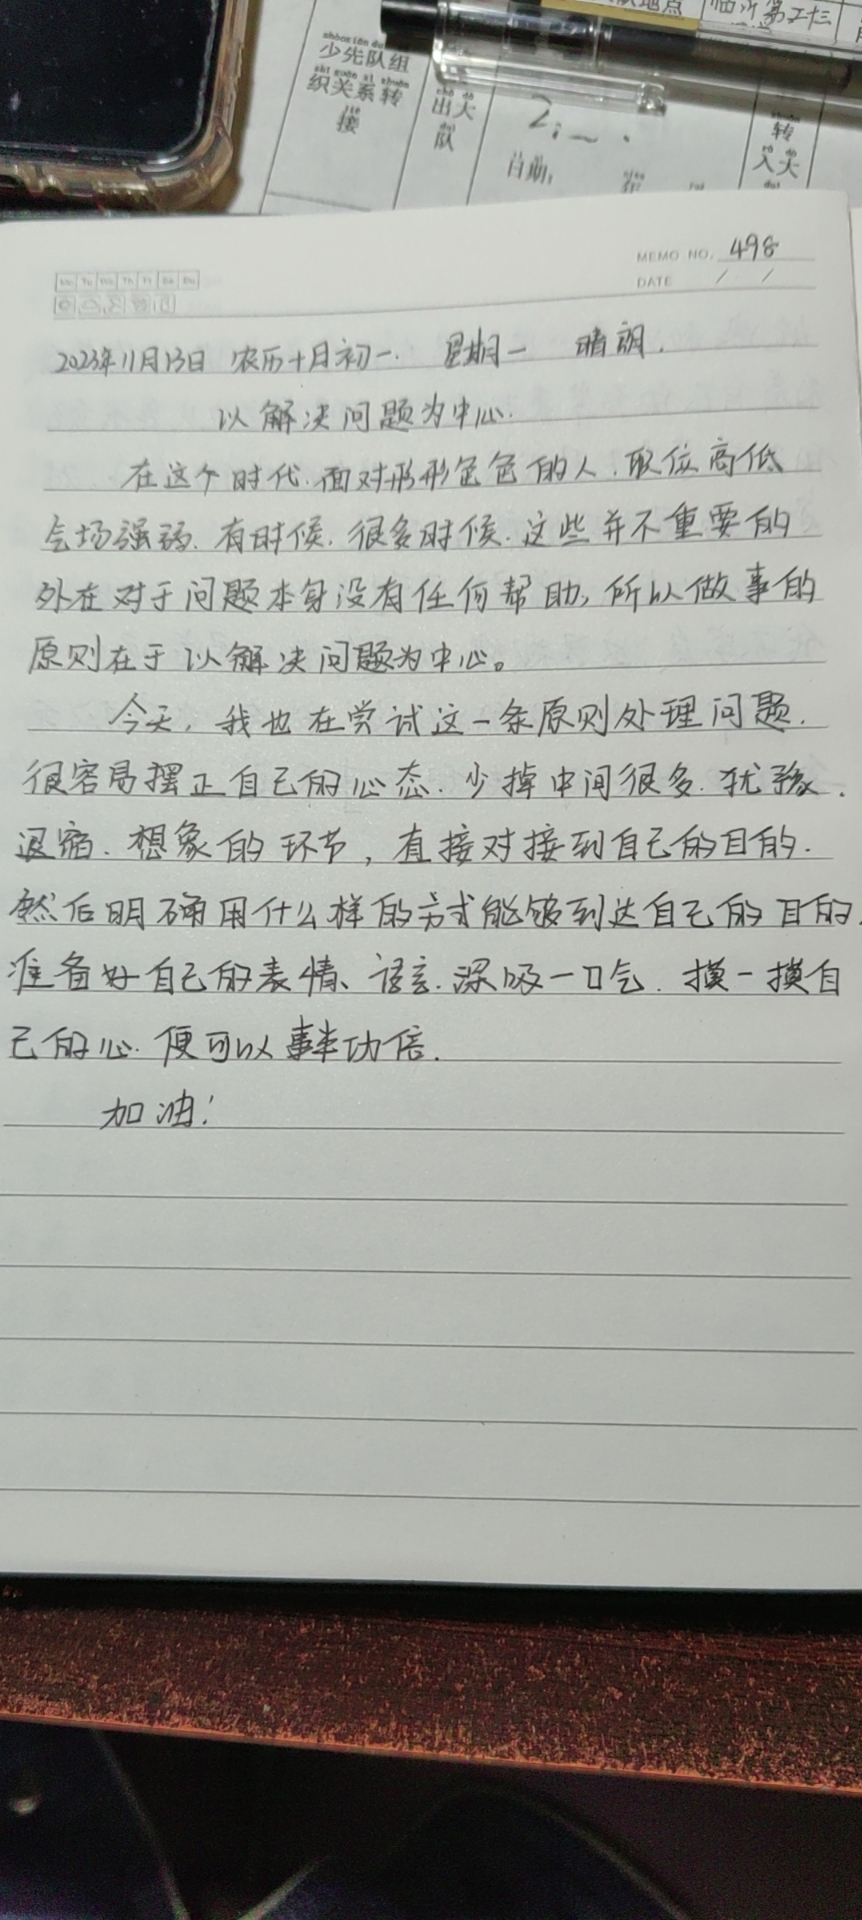 shào xiān duì
少先队组
zhī guān xì zhuǎn
织关系转
jiē
接
chū dà
出大
duì
队
2;一.
日期:
年
地点
临沂第
转
入大
MEMO NO. 498
DATE / /
Mo Tu We Th Fr Sa Su
2023年11月13日 农历十月初一. 星期一 晴朗.
以解决问题为中心.
在这个时代.面对形形色色的人.职位高低
气场强弱.有时候.很多时候.这些并不重要的
外在对于问题本身没有任何帮助,所以做事的
原则在于以解决问题为中心。
今天,我也在尝试这一条原则处理问题.
很容易摆正自己的心态.少掉中间很多.犹豫.
退缩.想象的环节,直接对接到自己的目的.
然后明确用什么样的方式能够到达自己的目的.
准备好自己的表情、语言.深吸一口气.摸一摸自
己的心.便可以事半功倍.
加油!